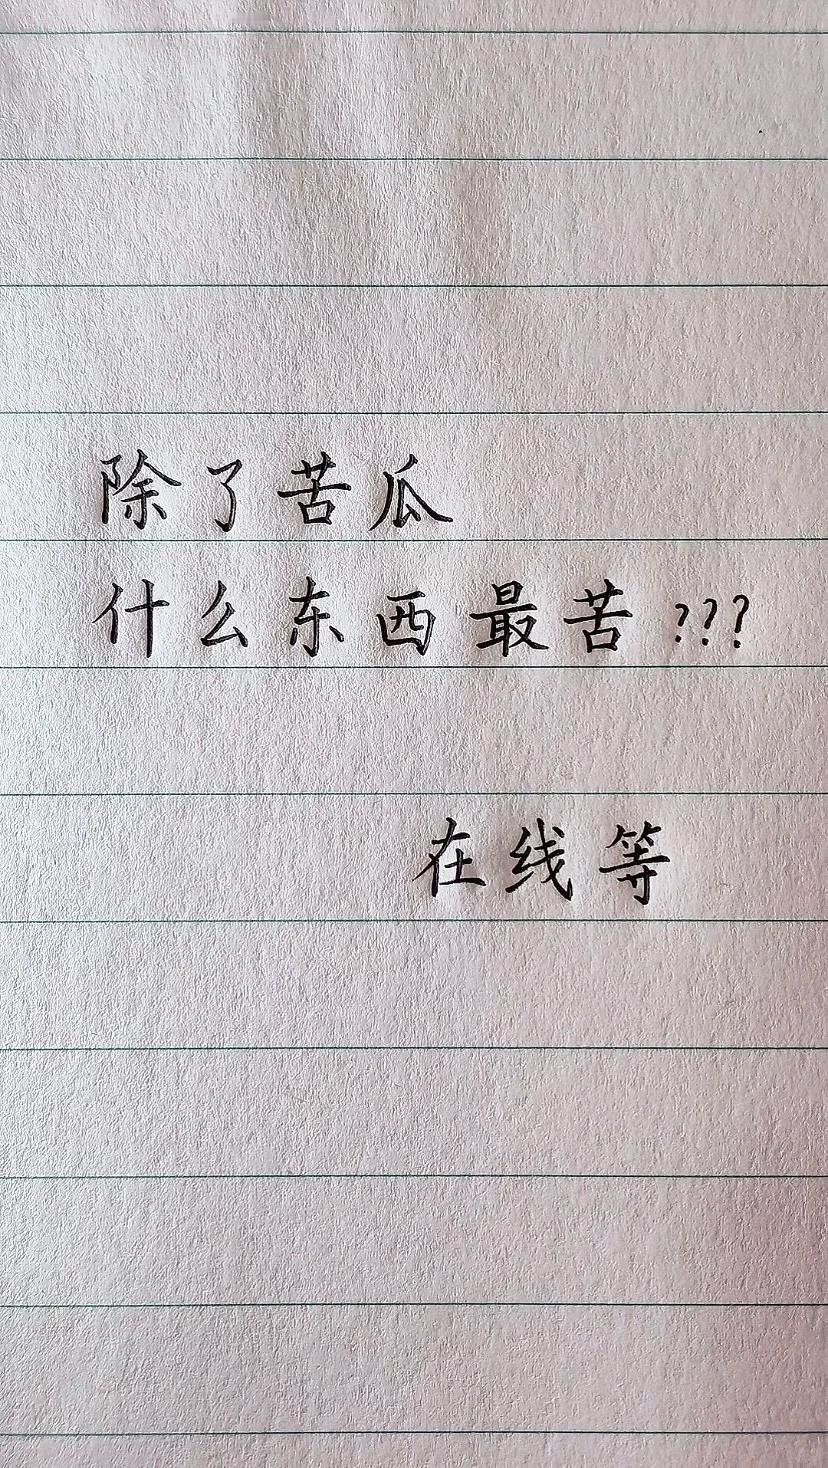 除了苦瓜
什么东西最苦???
在线等